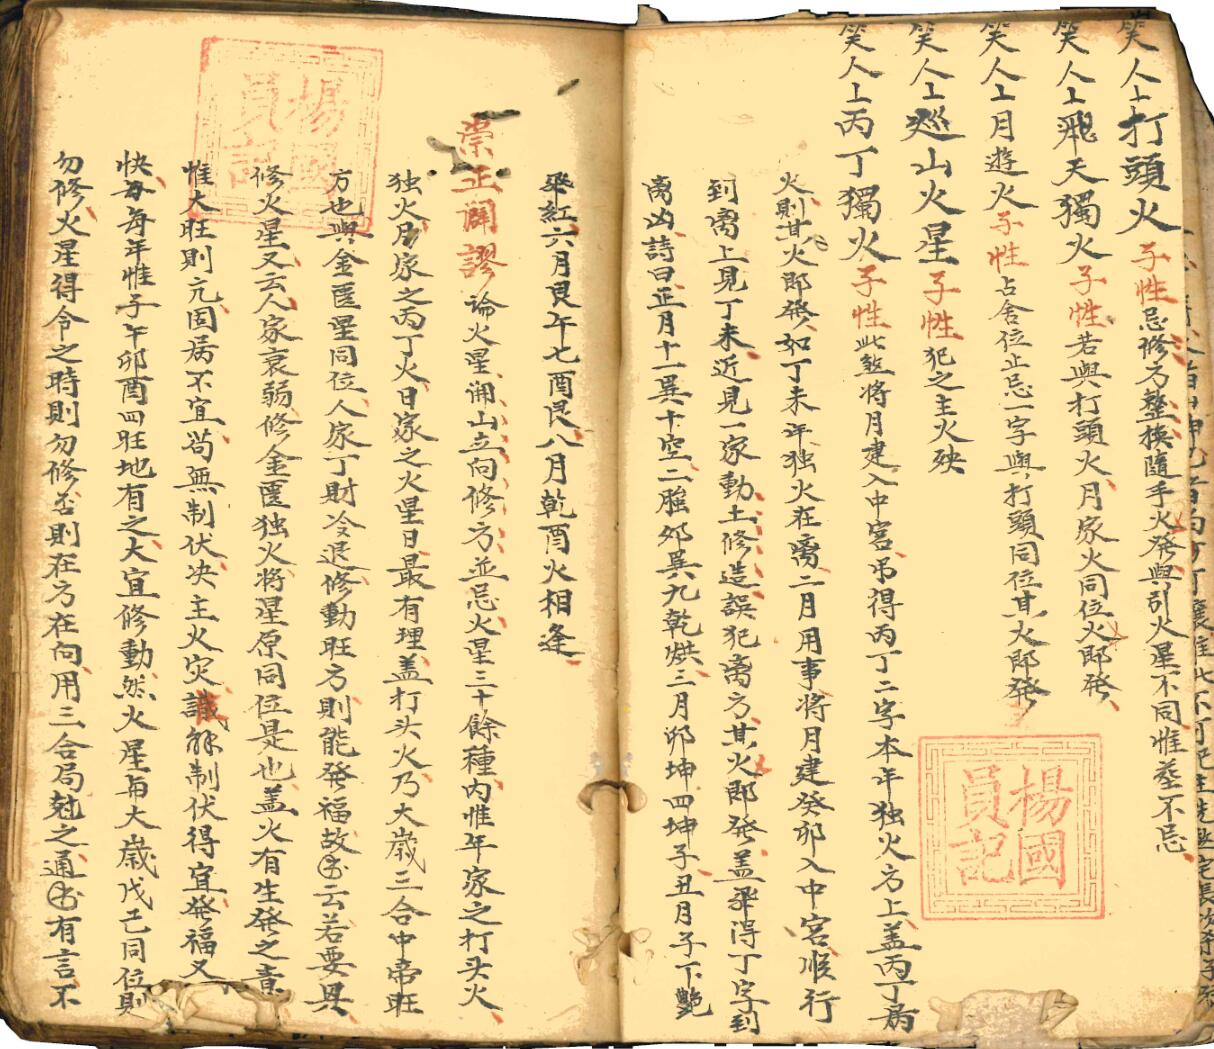 人上打頭火子性忌修方整換隨手火發與引火星不同惟葬不忌
人上飛天獨火子性若與打頭火月家火同位火即發
人上月遊火子性占舍位止忌一字與打頭同位其火即發
人上巡山火星子性犯之主火殃
人上丙丁獨火子性此煞將月建入中宮吊得丙丁二字本年独火方上盖丙丁病
火則其火即發如丁未年独火在离二月用事将月建癸卯入中宮順行
到离上見丁未近見一家動土修造誤犯离方其火即發盖飛得丁字到
离凶詩曰正月十一巽十空二 卯巽九乾烘三月卯坤四坤子丑月子下艷
飛紅六月艮午七酉艮八月乾酉火相逢
崇正闢謬論火星開山立向修方並忌火星三十餘種内惟年家之打头火
独火月家之丙丁火日家之火星日最有理盖打头火乃大歲三合中帝旺
方也與金匱星同位人家丁財冷退修動旺方則能發福故 云若要興
修火星又云人家衰弱修金匱独火将星原同位是也盖火有生發之意
惟大旺則亢固病不宜苟無制伏决主火灾識 制伏得宜發福又
快毎每年惟子午卯酉四旺地有之大宜修動然火星与大歲戊己同位則
勿修火星得令之時則勿修否則在方在向用三合局尅之通 有言不
楊國員記
楊國員記